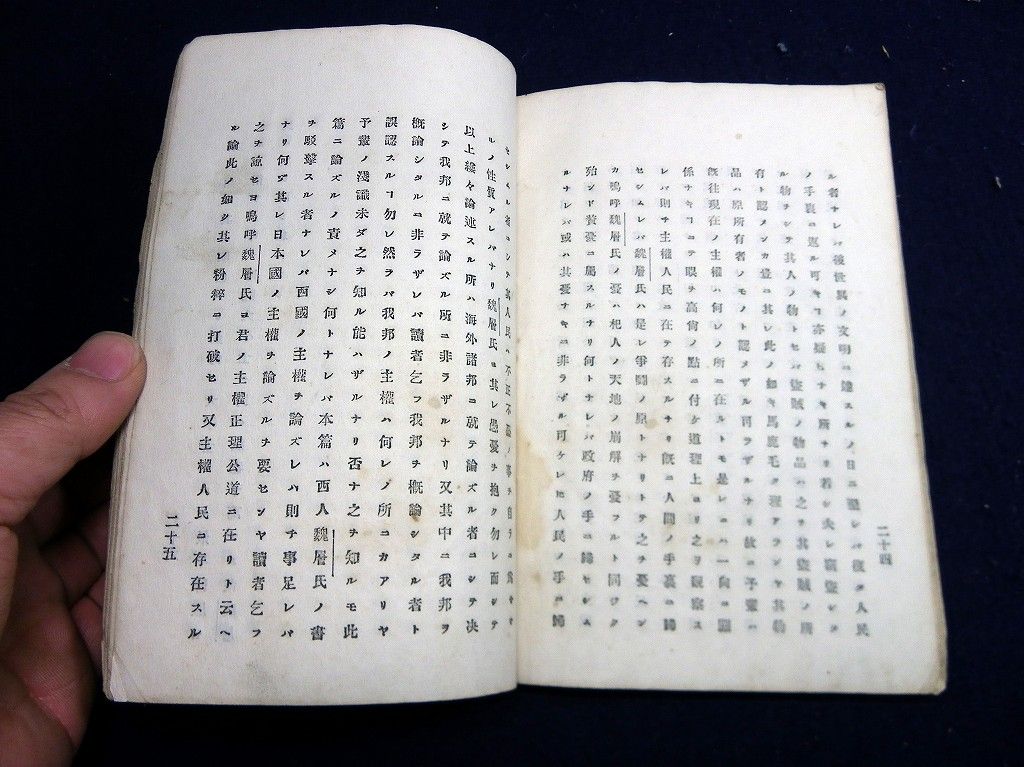 ル者ナレバ後世眞ノ文明ニ達スルノ日ニ遭レバ復タ人民
ノ手裏ニ返ル可キヿ亦疑ヒナキ所ナリ若シ夫レ竊盜シタ
ル物ヲシテ其人ノ物トセバ盜賊ノ物品ハ之ヲ其盜賊ノ所
有ト認メンカ豈ニ其レ此ノ如キ馬鹿モタ理アランヤ其物
品ハ原所有者ノモノト認メザル可ラザルナリ故ニ予輩ハ
既往現在ノ主權ハ何レノ所ニ在ルトモ是レニハ一向ニ關
係ナキヿニテ眼ヲ高尚ノ點ニ付ケ道理上ヨリ觀察ス
レバ則チ主權人民ニ在テ存スルナリ既ニ人間ノ手裏ニ歸
セシムレバ魏層氏ハ是レ爭鬪ノ原トナリトテ之ヲ憂ヘシ
カ嗚呼魏層氏ノ憂ハ杞人ノ天地ノ崩解ヲ憂フルト同シク
殆ンド贅發ニ屬スルナリ何トナレバ政府ノ手ニ歸セシ
ルナレバ或ハ其憂ナキニ非ラザル可ケレ𪜈人民ノ手ニ歸
二十四
セシムル者ニシテ其人民ハ不正不惡ノ事ヲ自テニ
ルノ性質アレバナリ魏層氏ヨ其レ愚憂ヲ抱ク勿レ而シテ
以上縷々論述スル所ハ海外諸邦ニ就テ論ズル者ニシテ决
シテ我邦ニ就テ論ズル所ニ非ラザルナリ又其中ニ我邦ヲ
概論シタルニ非ラザレバ讀者乞フ我邦ヲ概論シタル者ト
誤認スルヿ勿レ然ラバ我邦ノ主權ハ何レノ所ニカアリヤ
予叢ノ淺識未ダ之ヲ知ル能ハザルナリ否ナ之ヲ知ルモ此
篇ニ論ズルノ責メナシ何トナレバ本篇ハ西人魏層氏ノ書
ヲ駁擊スル者ナレバ西國ノ主權ヲ論ズレハ則チ事足レバ
ナリ何ゾ其レ日本國ノ主權ヲ論ズルヲ要センヤ讀者乞フ
之ヲ諒セヨ嗚呼魏層氏ヨ君ノ主權正理公道ニ在リト云ヘ
ル論此ノ如ク其レ粉粹ニ打破セリ又主權人民ニ存在スル
二十五